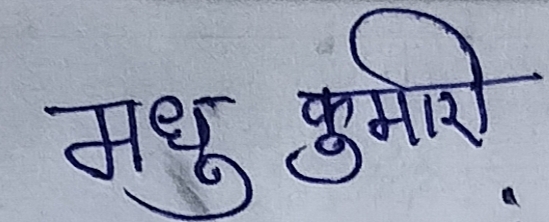 मधु कुमारी.